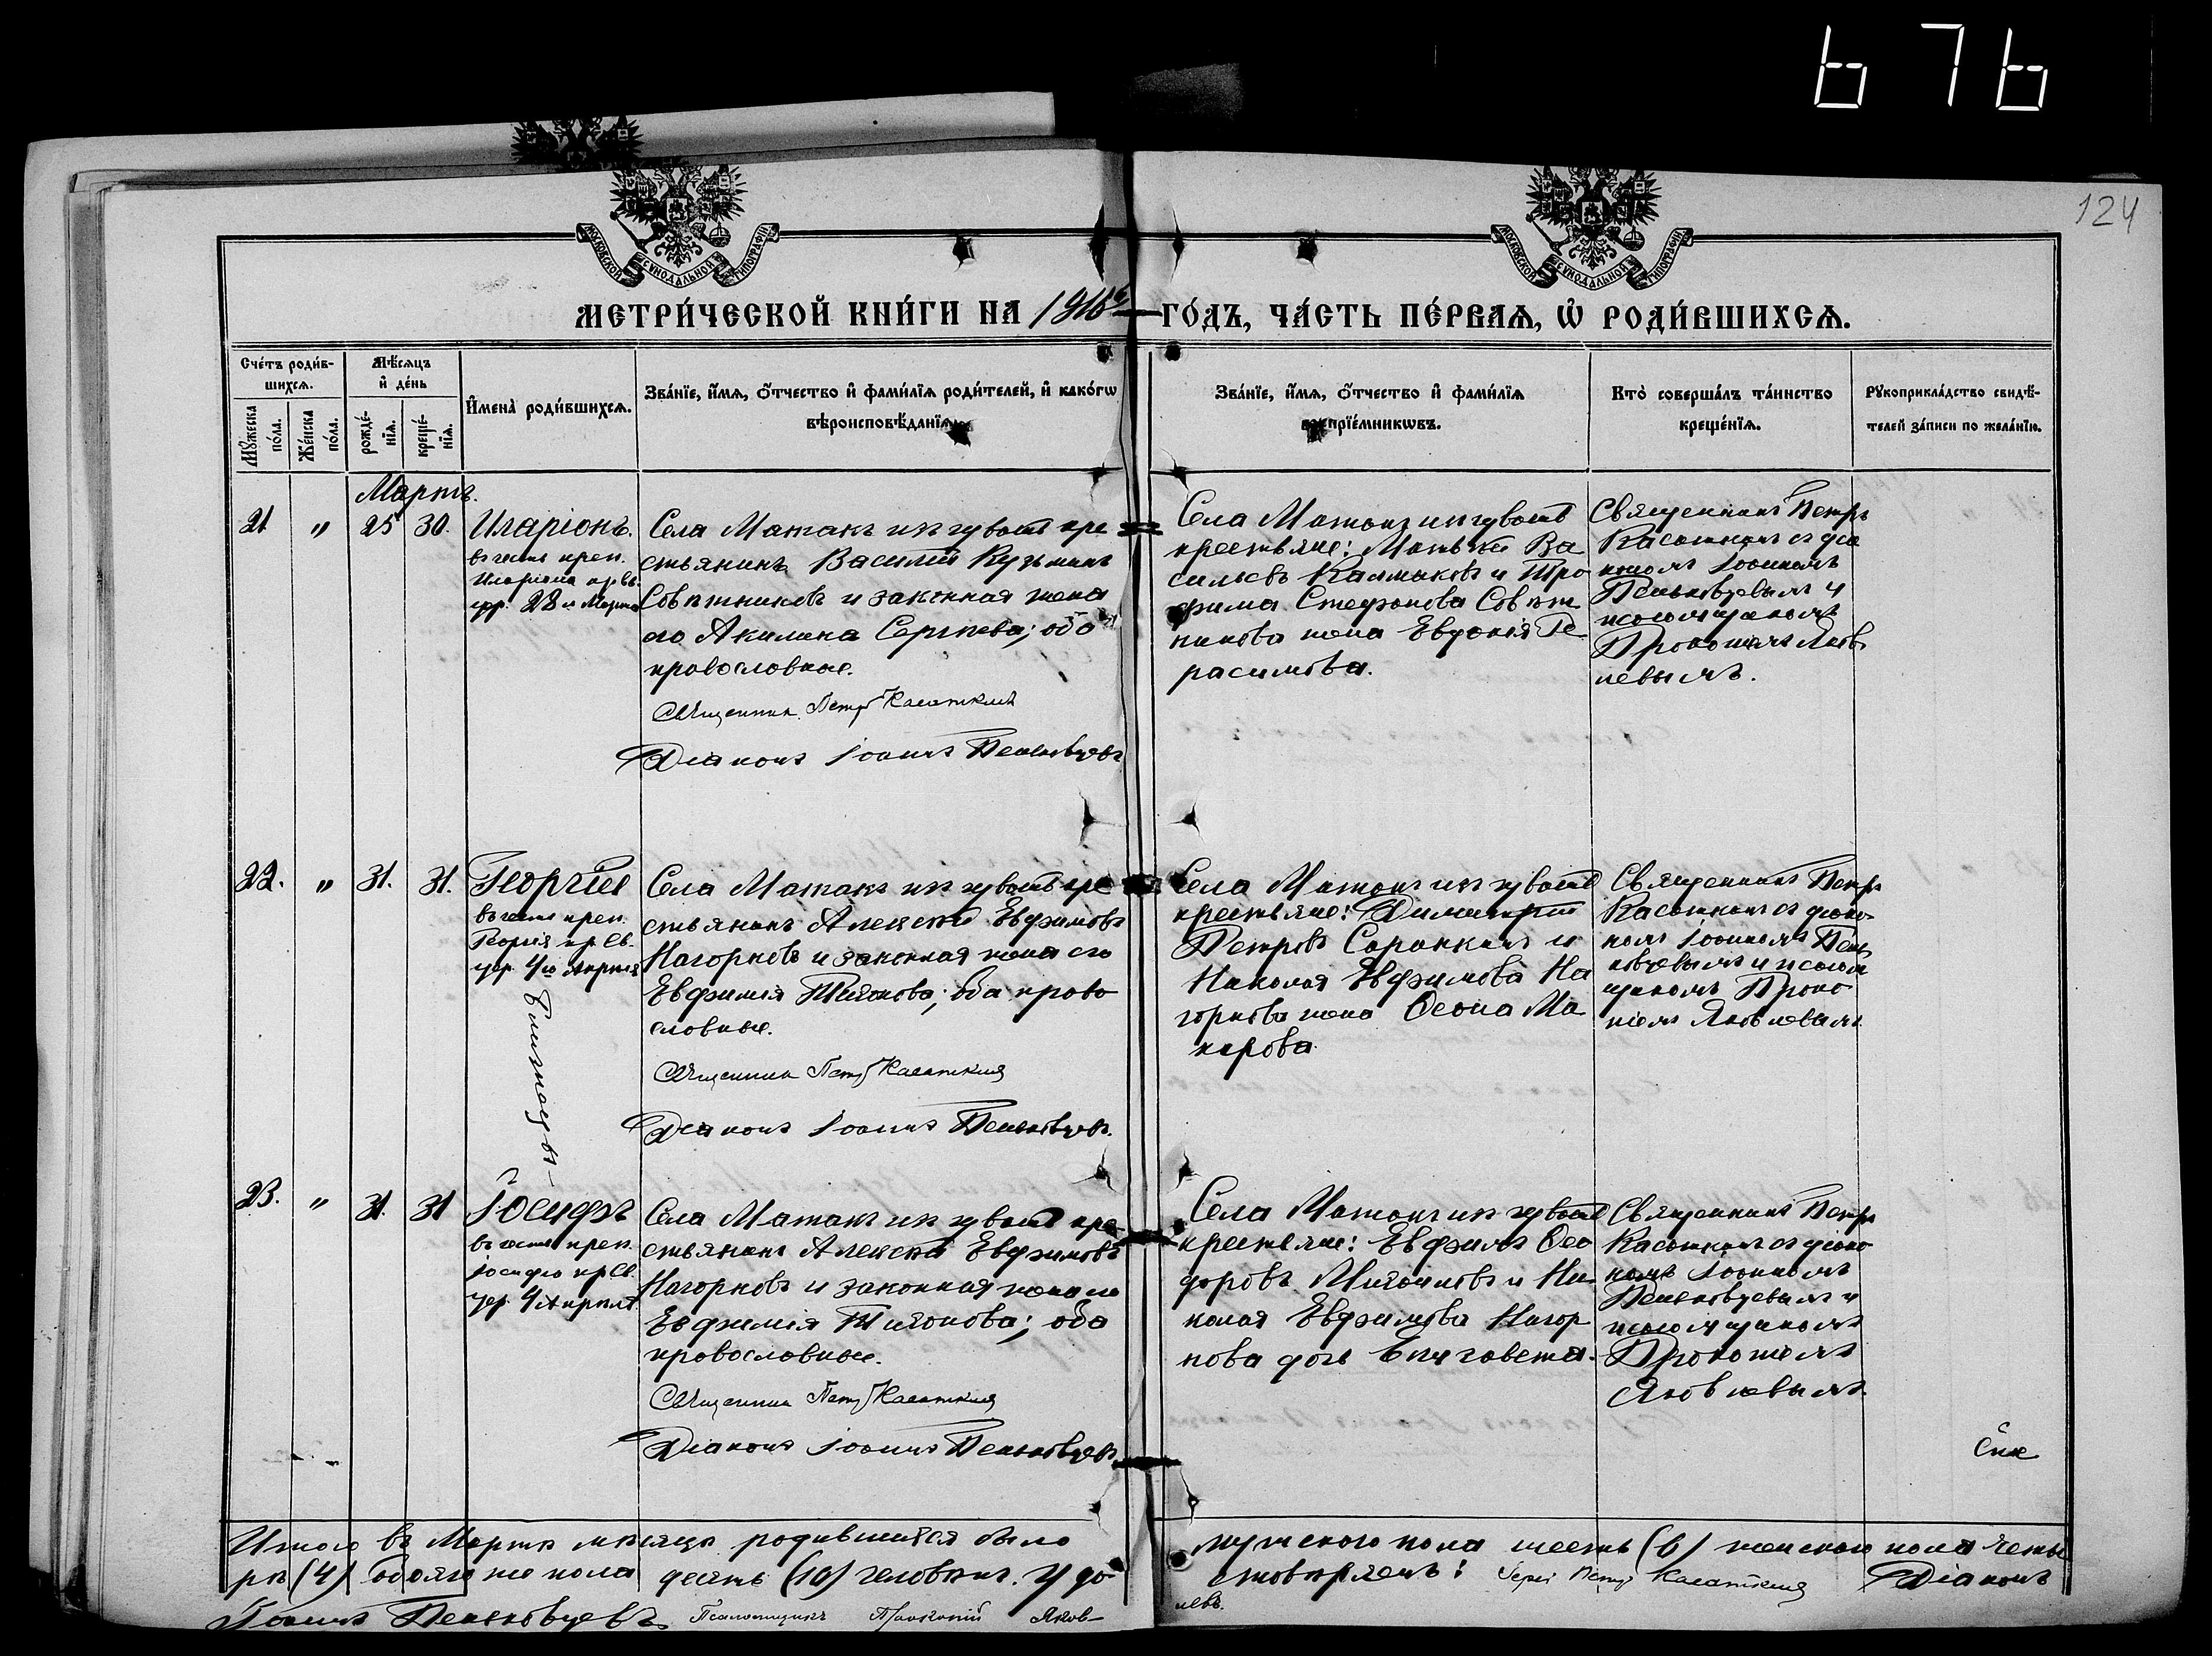 676
124
МОСКОВСКОЙ СѴНОДАЛЬНОЙ ТИПОГРАФІИ
МОСКОВСКОЙ СѴНОДАЛЬНОЙ ТИПОГРАФІИ
МЕТРИ́ЧЕСКОЙ КНИ́ГИ НА 1916 ГО́ДЪ, ЧА́СТЬ ПЕ́РВАѦ, Ѡ҆ РОДИ́ВШИХСѦ.
Сче́тъ роди́в-
шихсѧ.
Мꙋ́жеска по́ла.
Же́нска по́ла.
Мѣ́сѧцъ
и҆ де́нь
рожде́-нїѧ.
креще́-нїѧ.
И҆мена̀ роди́вшихсѧ.
Зва́нїе, и҆́мѧ, о҆́тчество и҆ фами́лїѧ роди́телей, и҆ како́гѡ
вѣроисповѣ́данїѧ.
Зва́нїе, и҆́мѧ, о҆́тчество и҆ фами́лїѧ
воспрїе́мникѡвъ.
Кто̀ соверша́лъ та́инство
креще́нїѧ.
Рꙋкоприкла́дство свидѣ́-
телей за́писи по жела́нїю.
Мартъ.
21 " 25 30. Иларіонъ.
въ честь преп.
Иларіона
28 Марта
Села Матакъ крестьянинъ Василій Кузьминъ
Совѣтниковъ и законная жена
его Акилина Сергѣева; оба
православные.
Священникъ Петръ Касаткинъ
Діаконъ Іоаннъ Пеньковцевъ
Села Матакъ
крестьяне: Матѳей Ва
сильевъ Калмыковъ и Тро
фима Стефанова Совѣт
никова жена Евдокія Ге
расимова.
Священникъ Петръ
Касаткинъ съ діа
кономъ Іоанномъ
Пеньковцевымъ и
псаломщикомъ
Прокопіемъ Яков
левымъ.
22. " 31. 31. Георгій
въ честь преп.
Георгія
4го Апрѣля
Села Матакъ кре
стьянинъ Алексѣй Евфимовъ
Нагорновъ и законная жена его
Евфимія Тихонова; оба право
славные.
Священникъ Петръ Касаткинъ
Діаконъ Іоаннъ Пеньковцевъ.
Села Матакъ
крестьяне: Димитрій
Петровъ Саранкинъ и
Николая Евфимова На
горнова жена Ѳеона Ма
карова.
Священникъ Петръ
Касаткинъ съ діако-
номъ Іоанномъ Пень
ковцевымъ и псалом
щикомъ Проко
піемъ Яковлевымъ.
Близнецы
23. " 31. 31 Іосифъ
въ честь преп.
Іосифа
4 Апрѣля
Села Матакъ кре
стьянинъ Алексѣй Евфимовъ
Нагорновъ и законная жена его
Евфимія Тихонова; оба
православные.
Священникъ Петръ Касаткинъ
Діаконъ Іоаннъ Пеньковцевъ.
Села Матакъ
крестьяне: Евфимъ Ѳео
доровъ и Ни
колая Евфимова Нагор
нова дочь Елизавета.
Священникъ Петръ
Касаткинъ съ діако
номъ Іоанномъ
Пеньковцевымъ и
псаломщикомъ
Прокопіемъ
Яковлевымъ.
Итого въ Мартѣ мѣсяцѣ родившихся было мужского пола шесть (6) женского пола четы
ре (4) обоего же пола десять (10) человѣкъ. Удо стовѣряемъ: Іерей Петръ Касаткинъ Діаконъ
Іоаннъ Пеньковцевъ Псаломщикъ Прокопій Яков-
левъ.